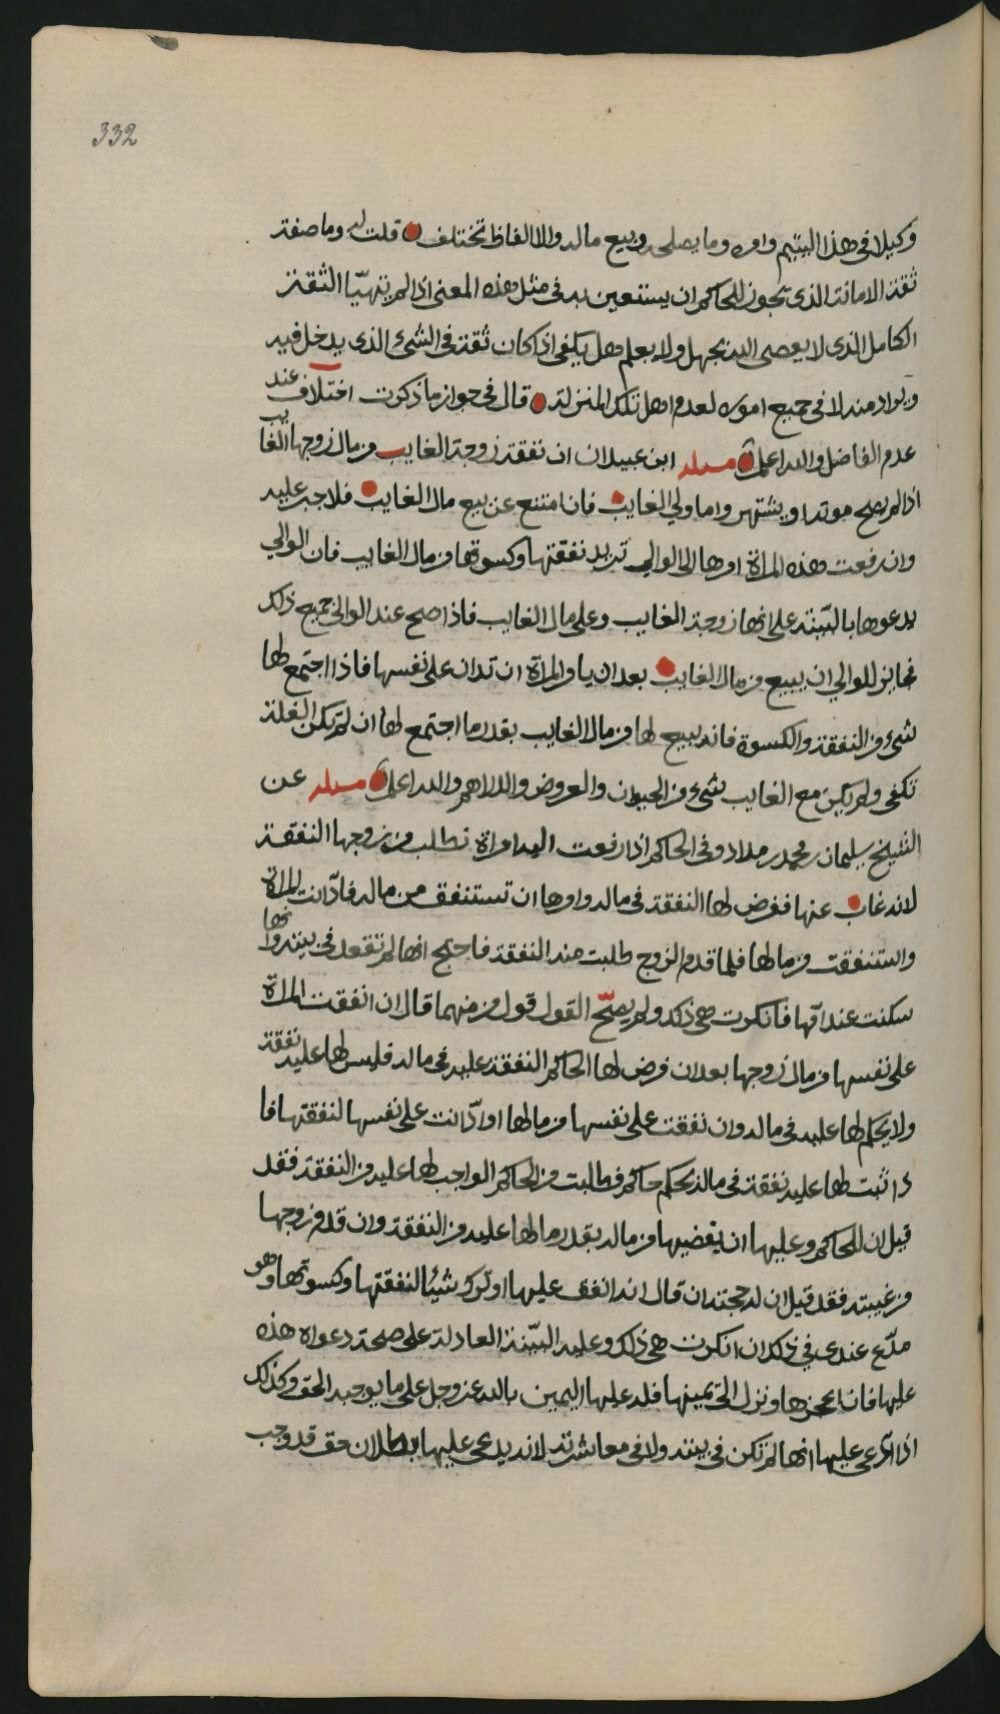 332
وكيلا في هذا اليتيم وامره وما يصلحه وبيع ماله والالفاظ تختلف قلت له وما صفته
ثقة الامانة الذي يجوز للحاكم ان يستعين به في مثل هذه المعنى اذا لم يتهيّا الثقة
الكامل الذي لا يعصي الله بجهل ولا بعلم هل يكفي اذا كان ثقة في الشيء الذي يدخل فيه
ويراد منه لا في جميع اموره لعدم اهل تلك المنزلة قال في جواز ما ذكرت اختلاف عند
عدم الفاضل والله اعلم مسئلة ابن عبيدان ان نفقة زوجة الغايب من مال زوجها الغايب
اذا لم يصح موته او يشتهر واما ولي الغايب فان امتنع عن بيع مال الغايب فلا جبر عليه
وان رفعت هذه المراة امرها الى الوالي تريد نفقتها وكسوتها من مال الغايب فان الوالي
يدعوها بالبيّنة على انها زوجة الغايب وعلى مال الغايب فاذا صح عند الوالي جميع ذلك
فجايز للوالي ان يبيع من مال الغايب بعد ان يامر المراة ان تدان على نفسها فاذا اجتمع لها
شيء من النفقة والكسوة فانه يبيع لها من مال الغايب بقدر ما اجتمع لها ان لم تكن الغلة
تكفي ولم يكن مع الغايب شيء من الحيوان والعروض والدراهم والله اعلم مسئلة عن
الشيخ سليمان بن محمد بن مداد وفي الحاكم اذا رفعت اليه امراة تطلب من زوجها النفقة
لانه غاب عنها ففرض لها النفقة في ماله وامرها ان تستنفق من ماله فادّانت المراة
واستنفقت من مالها فلما قدم الزوج طلبت منه النفقة فاحتج انها لم تقعد في بيته وانها
سكنت عند امّها فانكرت هي ذلك ولم يصّح القول قول من منهما قال ان انفقت المراة
على نفسها من مال زوجها بعد ان فرض لها الحاكم النفقة عليه في ماله فليس لها عليه نفقة
ولا يحكم لها عليه في ماله وان نفقت على نفسها من مالها او ادّانت على نفسها لنفقتها فا
ذا ثبت لها عليه نفقة في ماله بحكم حاكم فطلبت من الحاكم الواجب لها عليه من النفقة فقد
قيل ان للحاكم وعليها ان يقضيها من ماله بقدر ما لها عليه من النفقة وان قدم زوجها
من غيبته فقد قيل ان له حجته ان قال انه انفق عليها او ترك شيئا لنفقتها وكسوتها وهو
مدّع عندي في ذلك ان انكرت هي ذلك وعليه البيّنة العادلة على صحة دعواه هذه
عليها فان اعجزها ونزل الى يمينها فله عليها اليمين بالله عز وجل على ما يوجبه الحق وكذلك
اذا ادّعى عليها انها لم تكن في بيته ولا في معاشرته لانه يدعي عليها بطلان حق قد وجب